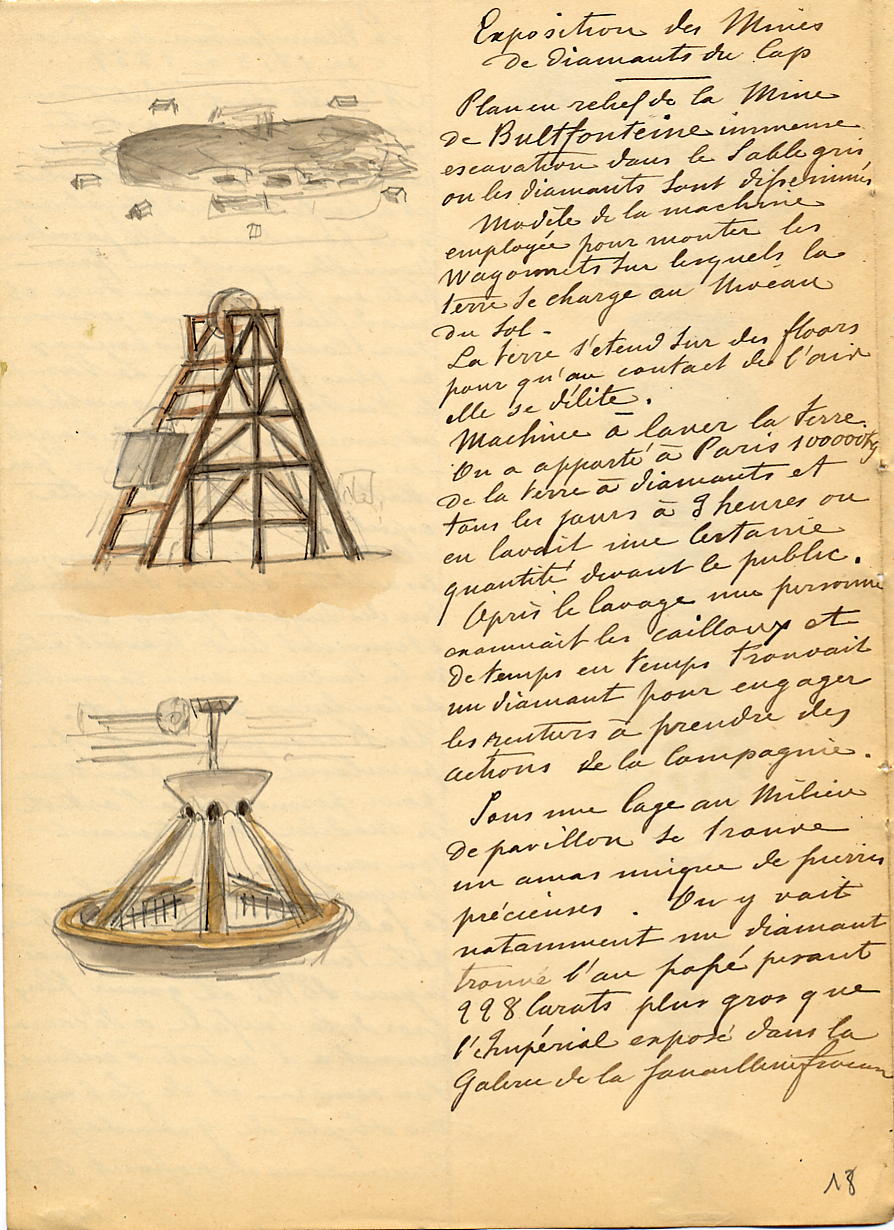 Exposition des Mines
de diamants du Cap
Plan en relief de la Mine
de Bultfonteine immense
escavation dans le Sable gris
ou les diamants sont disseminés
Modèle de la machine
employée pour monter les
Wagonnets sur lesquels la
terre se charge au Niveau
du sol -
La terre s'etend sur des floors
pour qu'au contact de l'air
elle se délite.
Machine à laver la terre.
On a apporté à Paris 100000 Kg
de la terre à diamants et
tous les jours à 3 heures on
en lavait une Certaine
quantité devant le public.
Après le lavage une personne
examinait les cailloux et
de temps en temps trouvait
un diamant pour engager
les rentiers à prendre des
actions de la Compagnie.
Sous une Cage au Milieu
de pavillon se trouve
un amas unique de pierres
précieuses. On y voit
notamment un diamant
trouvé l'an passé pesant
228 Carats plus gros que
l'Impérial exposé dans la
Galerie de la
18